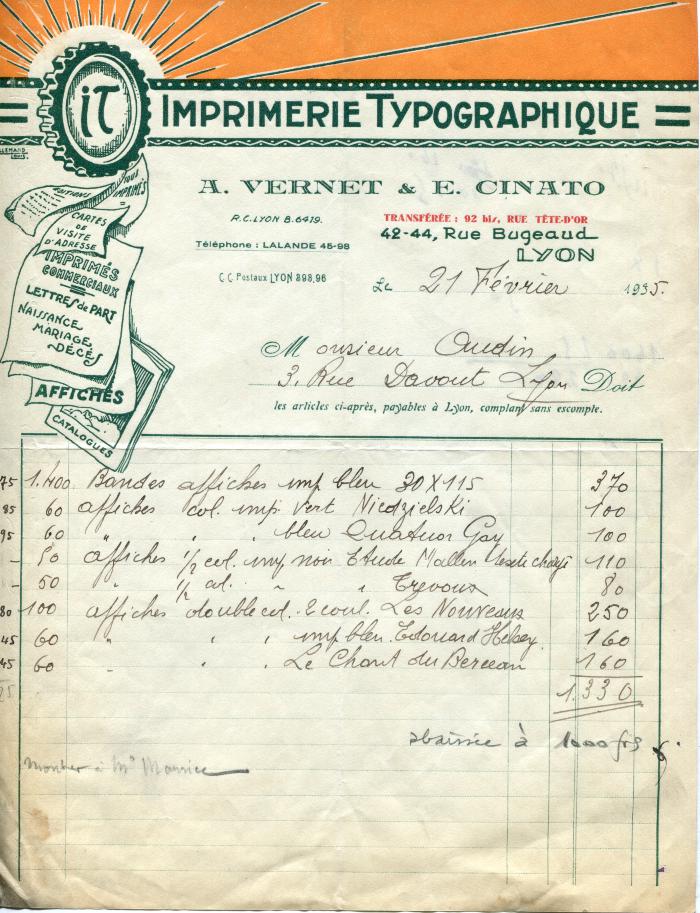 iT
IMPRIMERIE TYPOGRAPHIQUE
A. VERNET & E. CINATO
R.C. LYON B.6419.
TRANSFÉRÉE : 92 bis, RUE TÊTE-D'OR
Téléphone : LALANDE 45-98
42-44, Rue Bugeaud
LYON
C.C. Postaux LYON 898,96
Le 21 Février 1935.
ÉDITIONS
TOUS IMPRIMÉS
CARTES
DE
VISITE
D'ADRESSE
IMPRIMÉS
COMMERCIAUX
LETTRES de PART
NAISSANCE
MARIAGE
DÉCÉS
AFFICHES
CATALOGUES
Monsieur Audin
3, Rue Davout Lyon Doit
les articles ci-après, payables à Lyon, comptant sans escompte.
75 1.400 Bandes affiches imp bleu 30 X 115 370
85 60 affiches col. imp. vert Niedzielski 100
95 60 " " " bleu Quatuor Gay 100
- 50 affiches 1/2 col. imp noir Etude Mallen 110
- 50 " 1/2 col. " " Trevoux 80
80 100 affiches double col. 2 coul. Les Nouveaux 250
45 60 " " " imp bleu. Edouard Helsey. 160
45 60 " " " Le Chant du Berceau 160
25 1.330
abaissée à 1000 frs
montrer à Mr Maurice